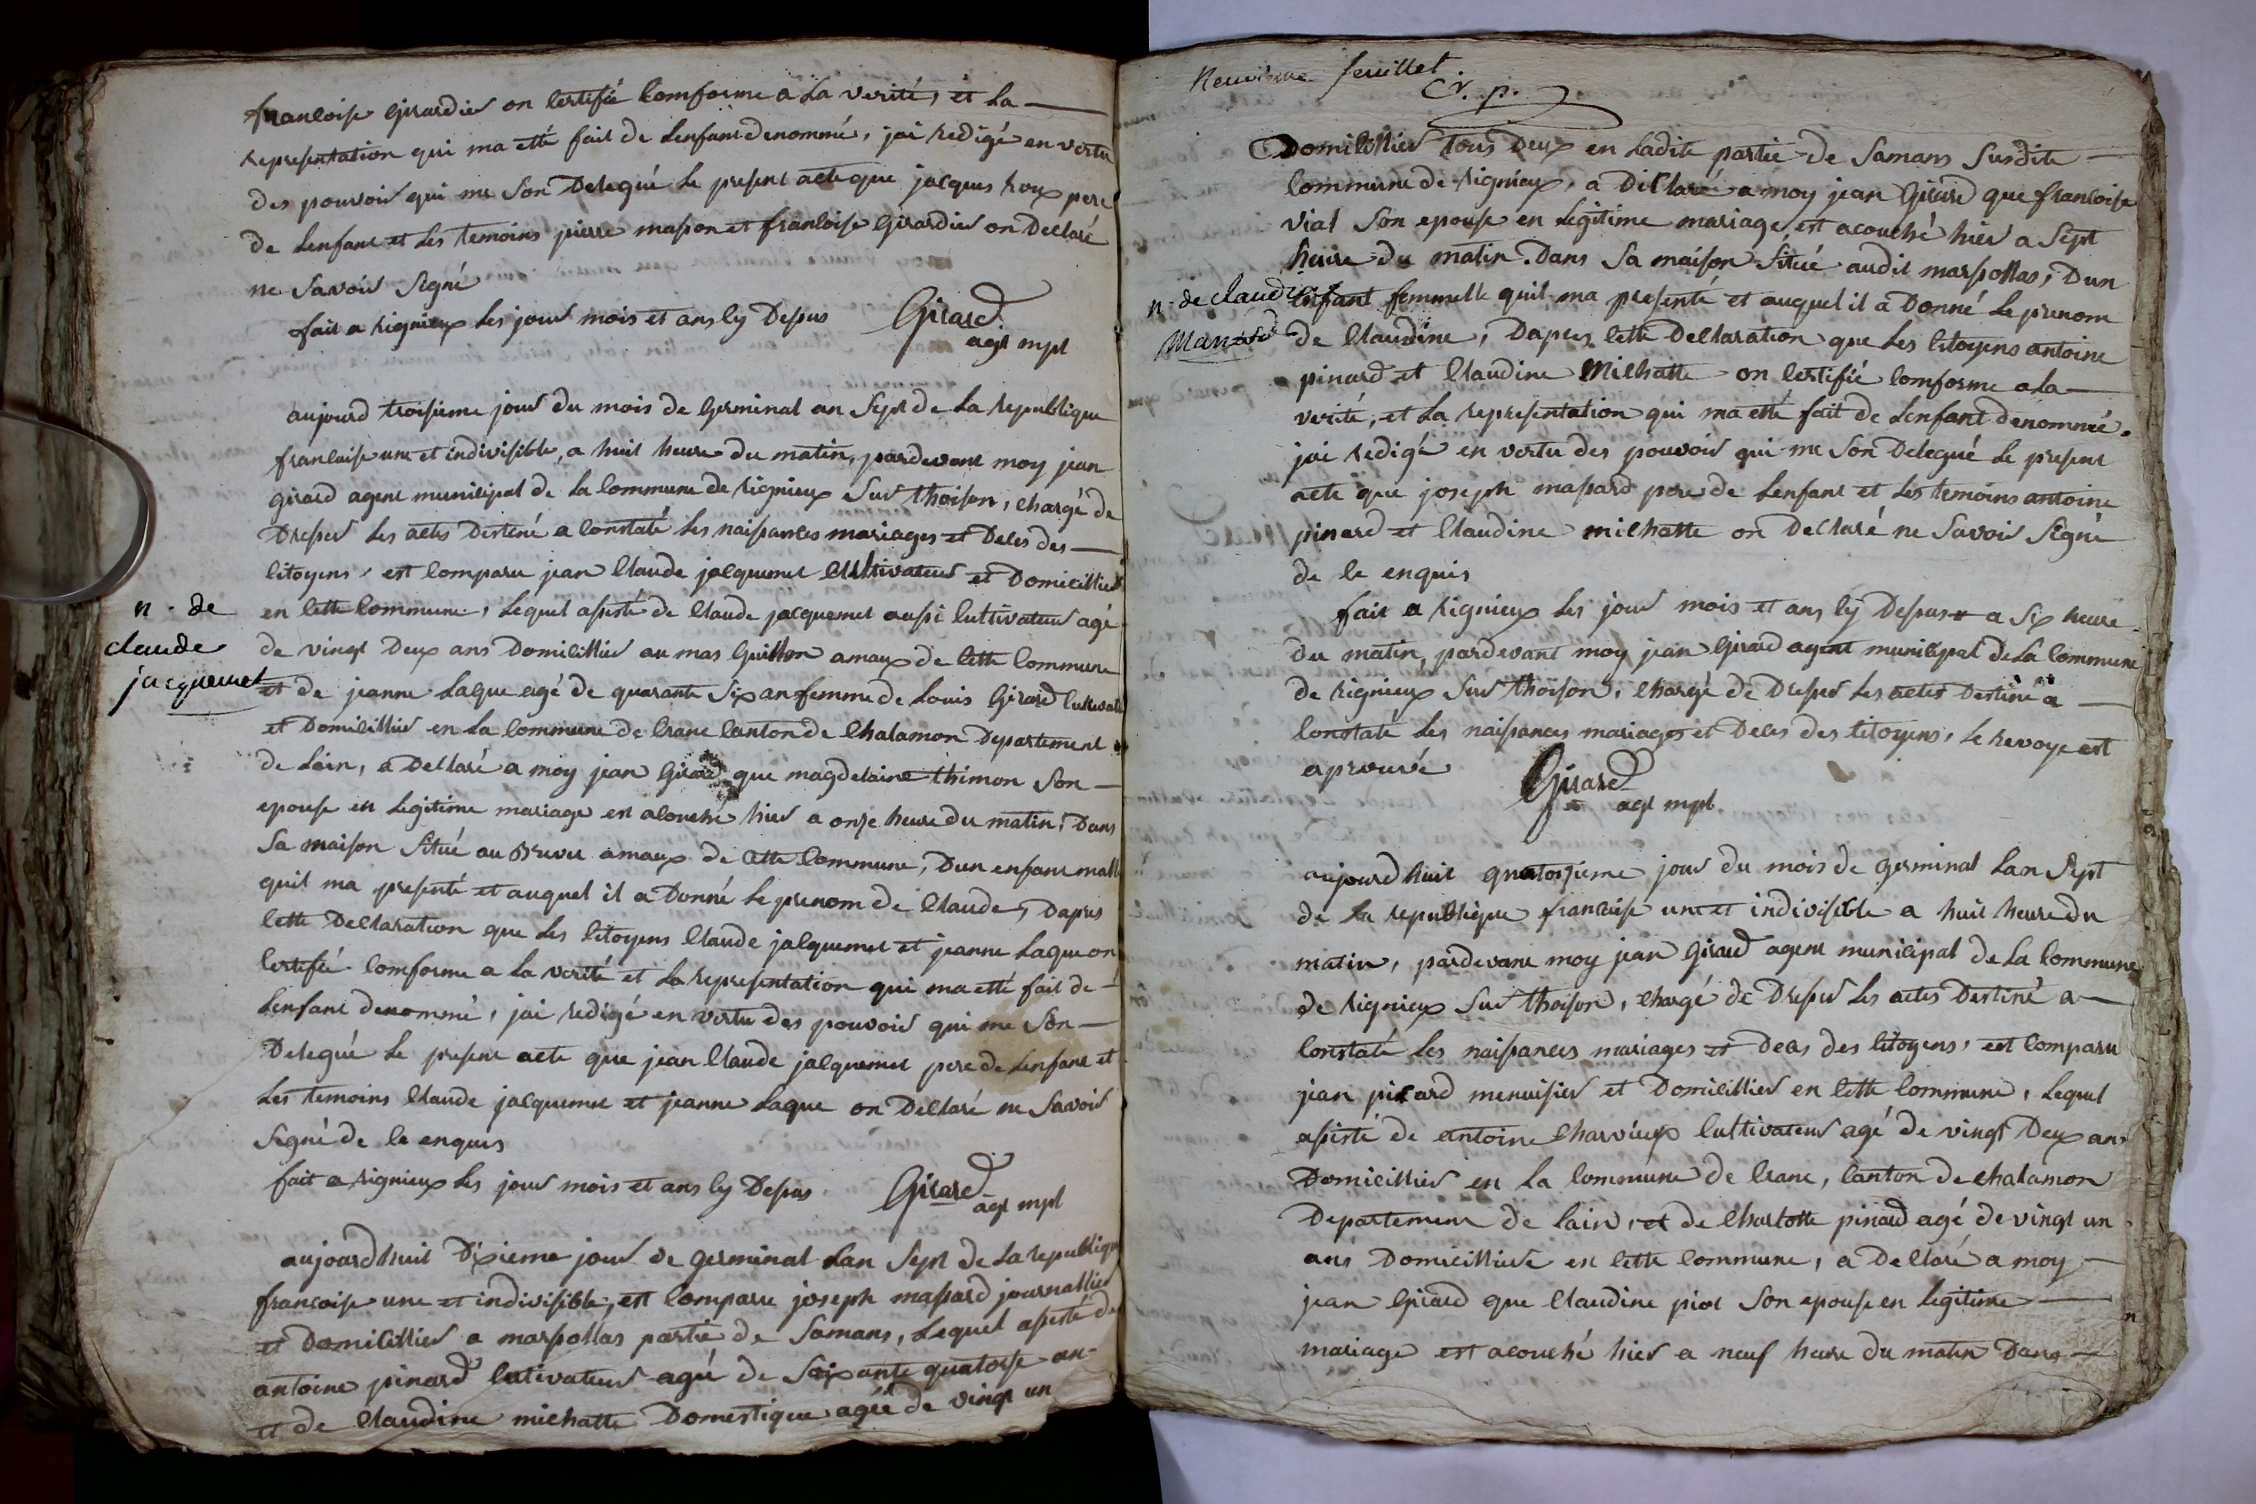 francoise Girardier on certifié comforme a la verité, et la
representation qui ma etté fait de lenfant denommé, jai redigé en vertu
des pouvoir qui me son Delegué le present acte que jacques roux pere
de lenfant et les temoins pierre masson et francoise Girardier on Declaré
ne savoir signé
fait a rignieux les jour mois et ans cy Dessus Girard
agt mpl
aujourd troisieme jour du mois de Germinal an sept de la republique
francaise une et indivisible, a huit heure du matin, pardevant moy jean
girard agent municipal de la commune de rignieux sur thoison, chargé de
Dresser les actes Destiné a constaté les naissances mariages et Deces des
citoyens, est comparu jean Claude jacquemet cultivateur et Domicillier
n. de
claude
jacquemet
en cette commune, lequel assisté de Claude jacquemet aussi cultivateur agé
de vingt Deux ans Domicillier au mas Guillon amaux de cette commune
et de jeanne laque agé de quarante six an femme de Louis Girard
et Domicillier en la commune de crane canton de Chalamon Departement
de lain, a Declaré a moy jean Girard que magdelaine thimon son
epouse en legitime mariage est acouché hier a onze heure du matin, Dans
sa maison situé au amaux de cette commune, Dun enfant malle
quil ma presenté et auquel il a Donné le prenom de Claude, Dapres
cette Declaration que les citoyens Claude jacquemet et jeanne laque on
certifié comforme a la verité et la representation qui ma etté fait de
lenfant denommé, jai redigé en vertu des pouvoir qui me son
Delegué le present acte que jean Claude jacquemet pere de lenfant et
les temoins Claude jacquemet et jeanne laque on Declaré ne savoir
signé de ce enquis
fait a rignieux les jour mois et ans cy Dessus Girard
agt mpl
aujourdhuit Dixieme jour de germinal lan sept de la republique
francoise une et indivisible, est comparu joseph massard journallier
et Domicillier a marpollas partie de samans, lequel assisté de
antoine pinard cultivateur agé de soixante quatorse an
et de Claudine michatte Domestique agéé de vingt un
neuvieme feuillet
Domicillier tous Deux en ladite partie de samans susdite
commune de rignieux, a Déclaré a moy jean Girard que francoise
vial son epouse en legitime mariage est acouché hier a sept
heure du matin. Dans sa maison situé audit marpollas, Dun
n. de claudine
enfant femmelle quil ma presenté et auquel il a Donné le prenom
de Claudine, Dapres cette Declaration que les citoyens antoine
pinard et Claudine Michatte on certifié comforme a la
verité, et la representation qui ma etté fait de lenfant denommé.
jai redigé en vertu des pouvoir qui me son Delegué le present
acte que joseph massard pere de lenfant et les temoins antoine
pinard et Claudine michatte on Declaré ne savoir signé
de ce enquis
fait a rignieux les jour mois et ans cy Dessus a six heure
du matin, pardevant moy jean Girard agent municipal de la commune
de rignieux sur thoison, chargé de Dresser les actes Destiné a
constaté les naissances mariages et Deces des citoyens, le renvoye est
aprouvé Girard
agt mpl.
aujourdhuit quatorzieme jour du mois de germinal lan sept
de la republique francaise une et indivisible a huit heure du
matin, pardevant moy jean Girard agent municipal de la commune
de rignieux sur thoison, chargé de Dresser les actes Destiné a
constaté les naissances mariages et Deces des citoyens, est comparu
jean picard menuisier et Domicillier en cette commune, lequel
assisté de antoine charvieux cultivateur agé de vingt Deux ans
Domicillier en la commune de crane, canton de chalamon
Departement de lain, et de Charlotte pinard agé de vingt un
ans Domicilliere en cette commune, a Declaré a moy
jean Girard que Claudine piot son epouse en legitime
mariage est acouché hier a neuf heure du matin Dans